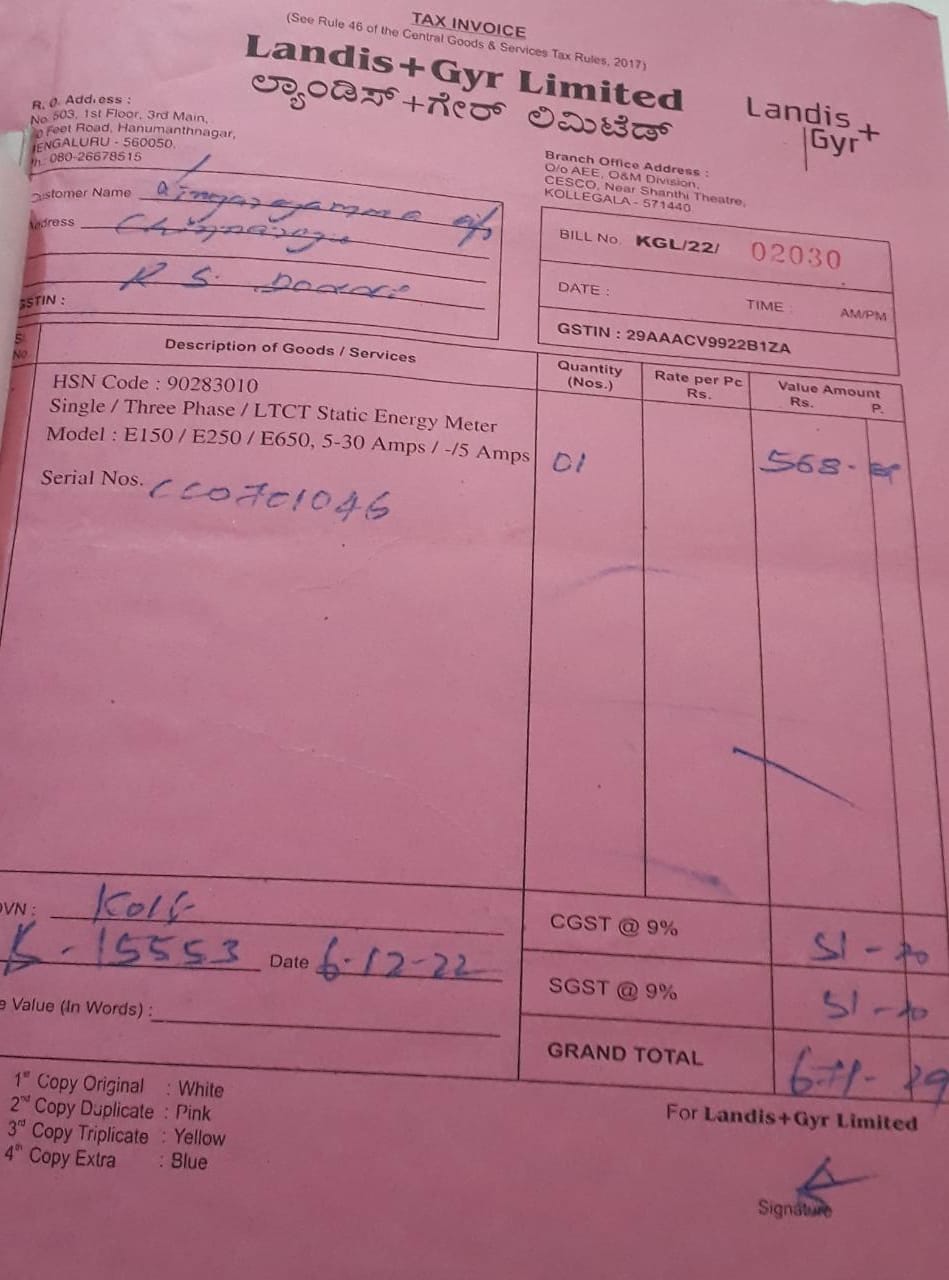 TAX INVOICE
(See Rule 46 of the Central Goods & Services Tax Rules, 2017)
Landis+Gyr Limited
ಲ್ಯಾಂಡಿಸ್+ಗೇರ್ ಲಿಮಿಟೆಡ್
Landis+
Gyr
R. O. Address :
No. 503, 1st Floor, 3rd Main,
Feet Road, Hanumanthnagar,
ENGALURU - 560050.
h.: 080-26678515
Branch Office Address :
O/o AEE, O&M Division,
CESCO, Near Shanthi Theatre,
KOLLEGALA - 571440.
ustomer Name
ddress
R S. Doddi
GSTIN :
BILL No. KGL/22/ 02030
DATE : TIME : AM/PM
GSTIN : 29AAACV9922B1ZA
Sl. No. Description of Goods / Services Quantity (Nos.) Rate per Pc Rs. Value Amount Rs. P.
HSN Code : 90283010
Single / Three Phase / LTCT Static Energy Meter
Model : E150 / E250 / E650, 5-30 Amps / -/5 Amps 01 568-
Serial Nos. CC0701046
OVN :
15553 Date 6-12-22
e Value (In Words) :
CGST @ 9% 51-
SGST @ 9% 51-
GRAND TOTAL 671-29
1st Copy Original : White
2nd Copy Duplicate : Pink
3rd Copy Triplicate : Yellow
4th Copy Extra : Blue
For Landis+Gyr Limited
Signature